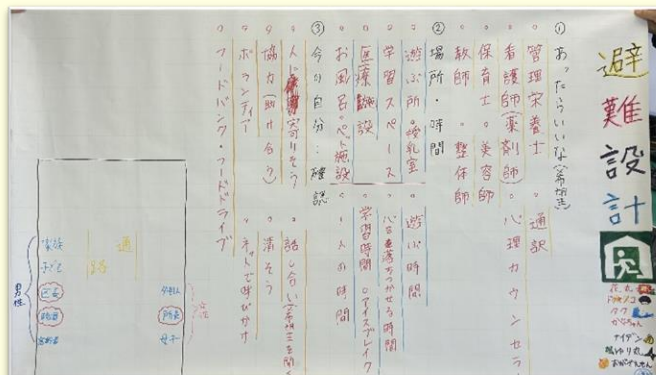 避難設計
① あったらいいな(希望)
管理栄養士 ◦通訳
看護師(薬剤師) ◦心理カウンセラ
保育士 ◦美容師
教師 ◦整体師
② 場所・時間
遊ぶ所 ◦授乳室 ◦遊ぶ時間
学習スペース ◦心を落ちつかせる時間
医療施設 ◦学習時間 ◦アイスブレイク
お風呂 ◦ペット施設 ◦一人の時間
③ 今の自分:確認
◦人に寄りそう ◦話し合い(希望を聞く
◦協力(助け合う) ◦清そう
◦ボランティア ◦ネットで呼びかけ
◦フードバンク・フードドライブ
通路
家族
子ども
男性
女性